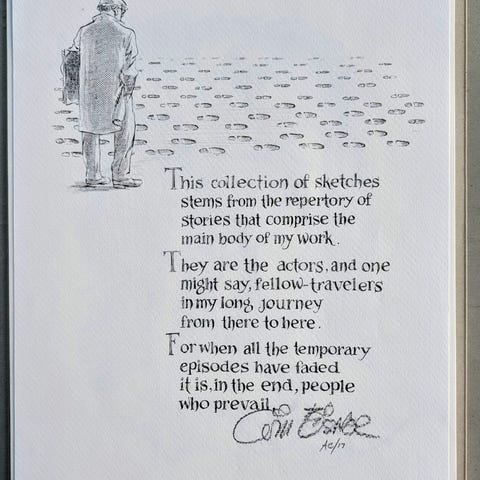 This collection of sketches
stems from the repertory of
stories that comprise the
main body of my work.
They are the actors, and one
might say, fellow-travelers
in my long journey
from there to here.
For when all the temporary
episodes have faded
it is, in the end, people
who prevail.
Will Eisner
AC/17